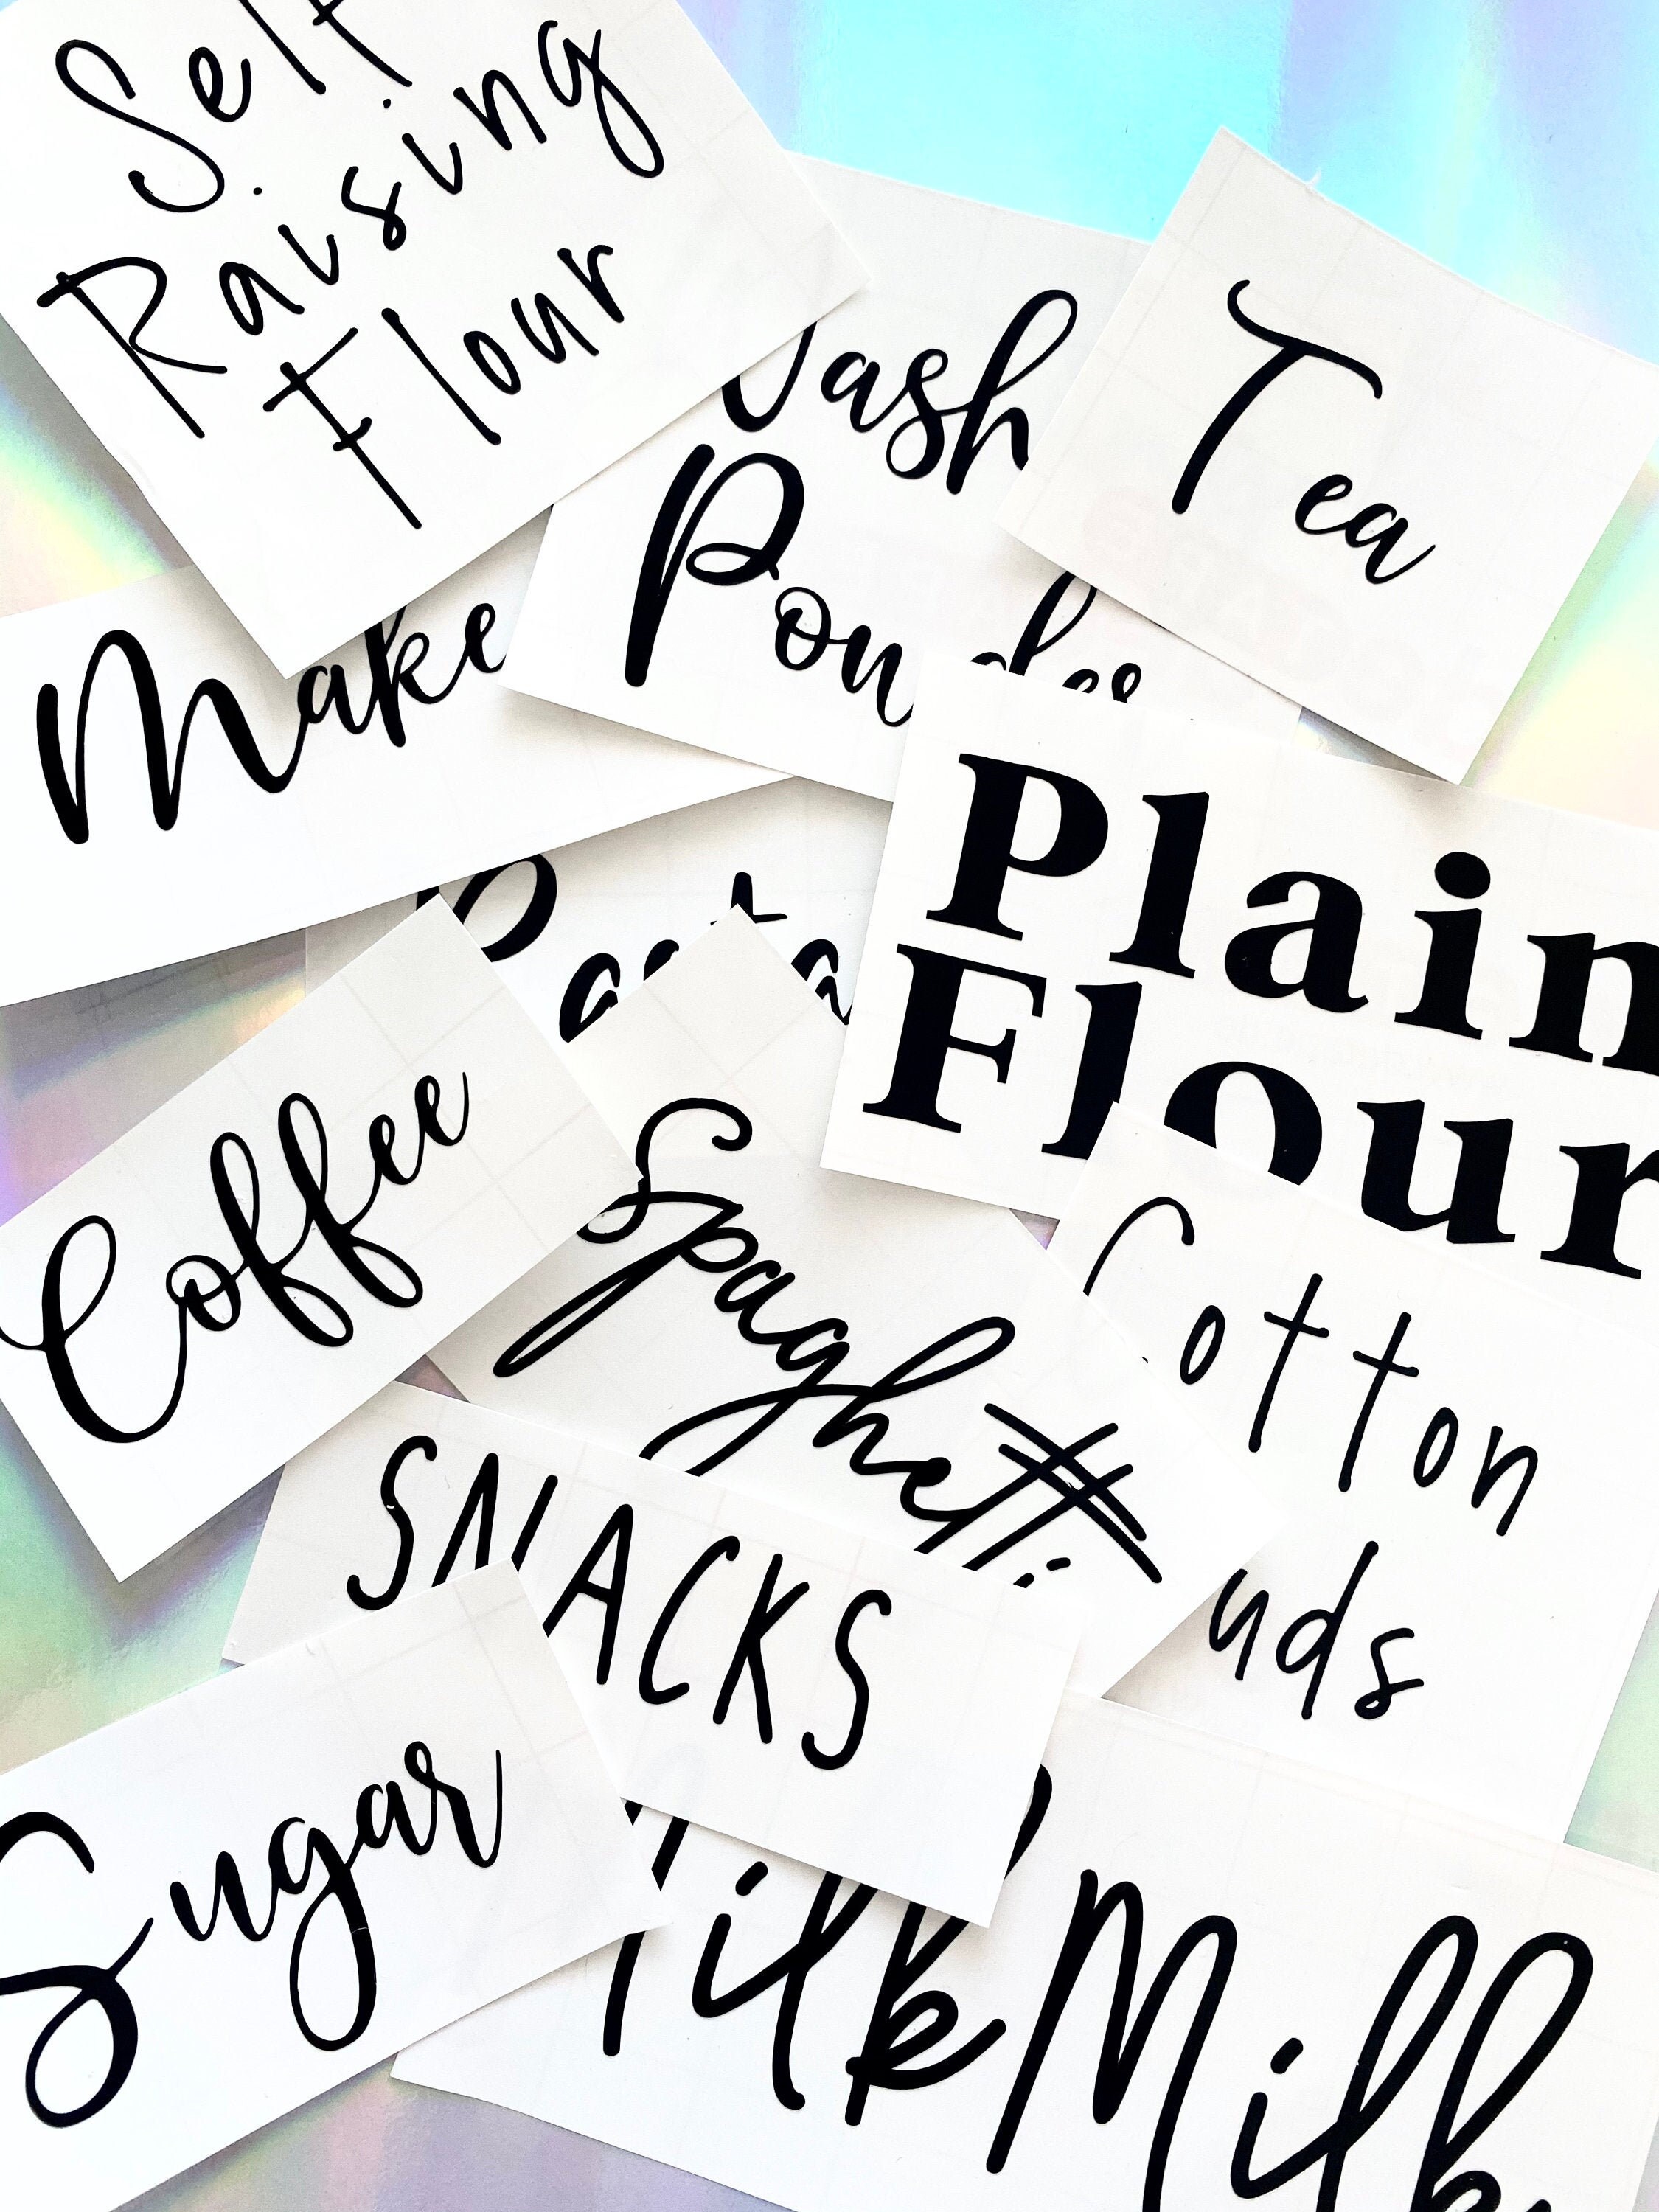 Self
Raising
Flour
Wash
Powder
Tea
Make
Plain
Flour
Pasta
Coffee
Spaghetti
Cotton
uds
SNACKS
Sugar
Milk
Milk